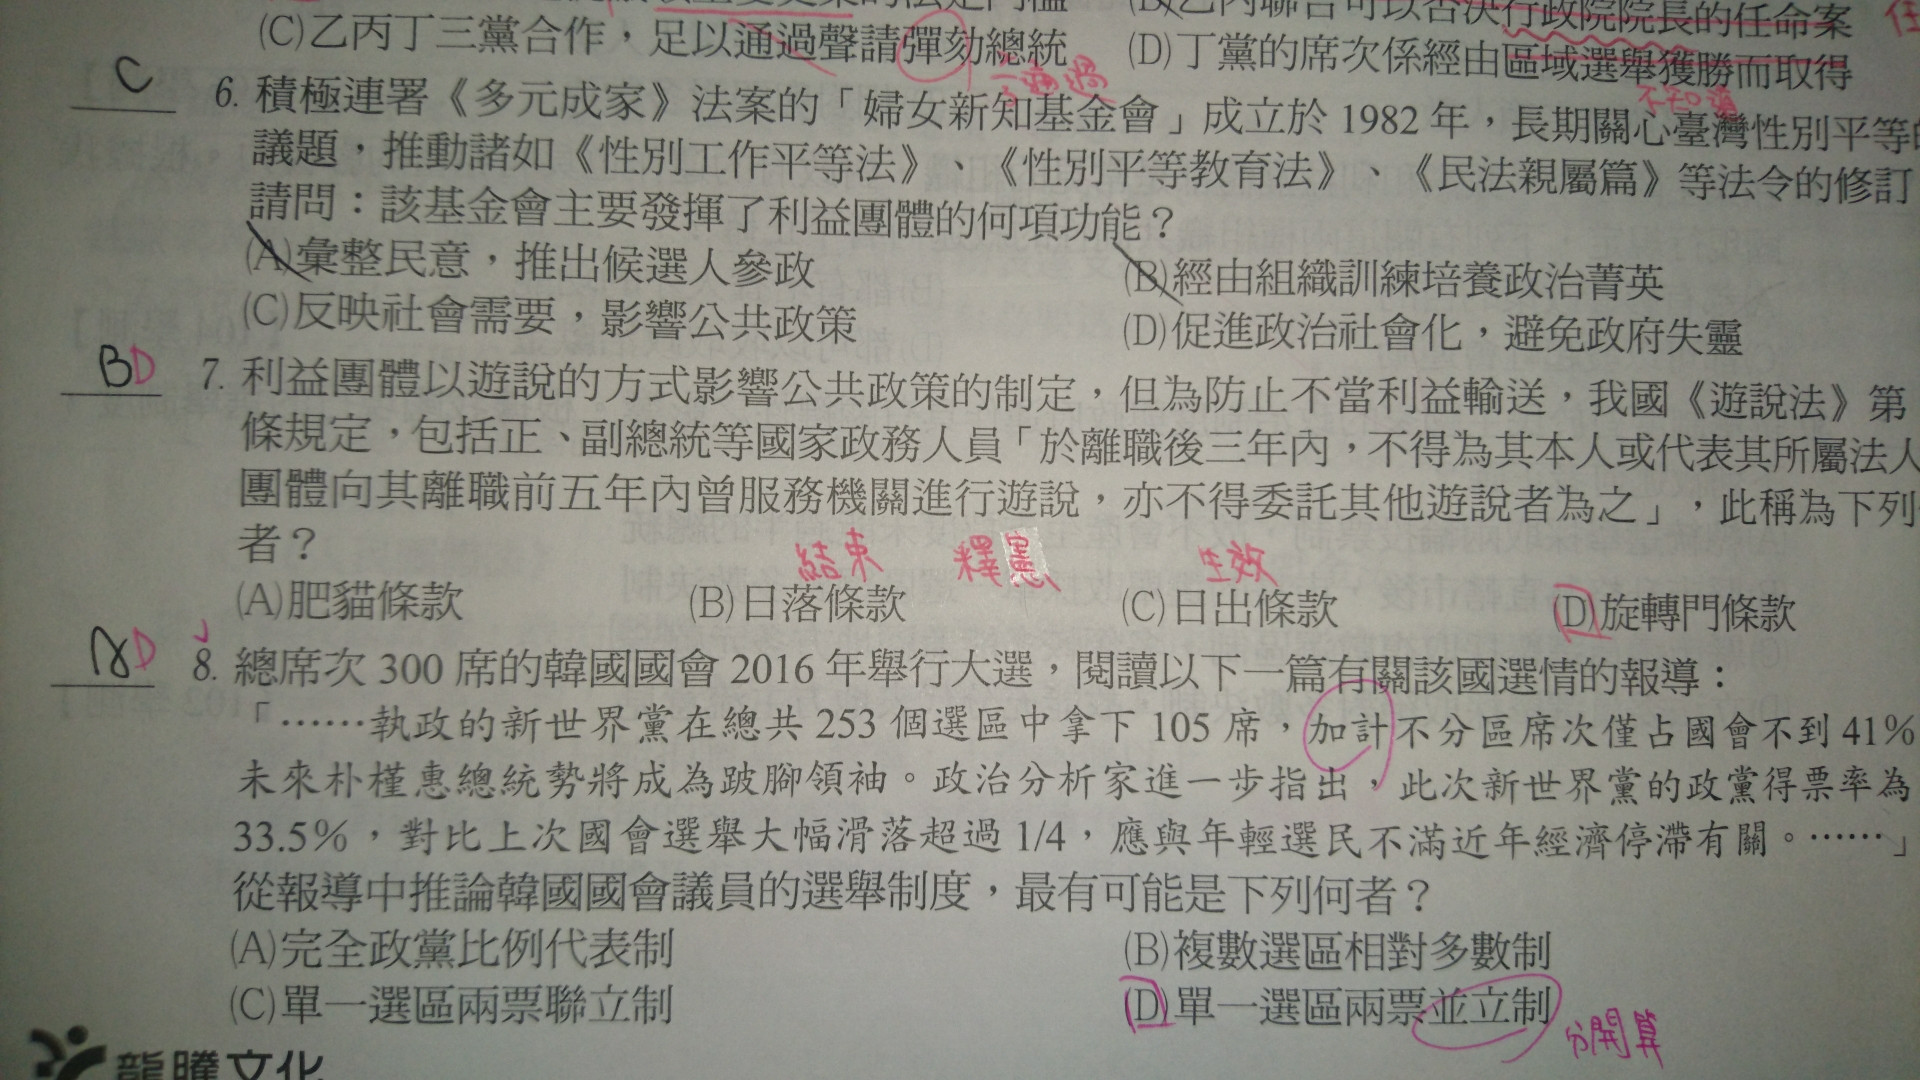 (C)乙丙丁三黨合作,足以通過聲請彈劾總統 (D)丁黨的席次係經由區域選舉獲勝而取得
不知道
C 6. 積極連署《多元成家》法案的「婦女新知基金會」成立於 1982 年,長期關心臺灣性別平等
議題,推動諸如《性別工作平等法》、《性別平等教育法》、《民法親屬篇》等法令的修訂
請問:該基金會主要發揮了利益團體的何項功能?
(A)彙整民意,推出候選人參政 (B)經由組織訓練培養政治菁英
(C)反映社會需要,影響公共政策 (D)促進政治社會化,避免政府失靈
BD 7. 利益團體以遊說的方式影響公共政策的制定,但為防止不當利益輸送,我國《遊說法》第
條規定,包括正、副總統等國家政務人員「於離職後三年內,不得為其本人或代表其所屬法人
團體向其離職前五年內曾服務機關進行遊說,亦不得委託其他遊說者為之」,此稱為下列
者?
結束 釋憲 生效
(A)肥貓條款 (B)日落條款 (C)日出條款 (D)旋轉門條款
AD 8. 總席次 300 席的韓國國會 2016 年舉行大選,閱讀以下一篇有關該國選情的報導:
「……執政的新世界黨在總共 253 個選區中拿下 105 席,加計不分區席次僅占國會不到 41%
未來朴槿惠總統勢將成為跛腳領袖。政治分析家進一步指出,此次新世界黨的政黨得票率為
33.5%,對比上次國會選舉大幅滑落超過 1/4,應與年輕選民不滿近年經濟停滯有關。……」
從報導中推論韓國國會議員的選舉制度,最有可能是下列何者?
(A)完全政黨比例代表制 (B)複數選區相對多數制
(C)單一選區兩票聯立制 (D)單一選區兩票並立制
分開算
龍騰文化